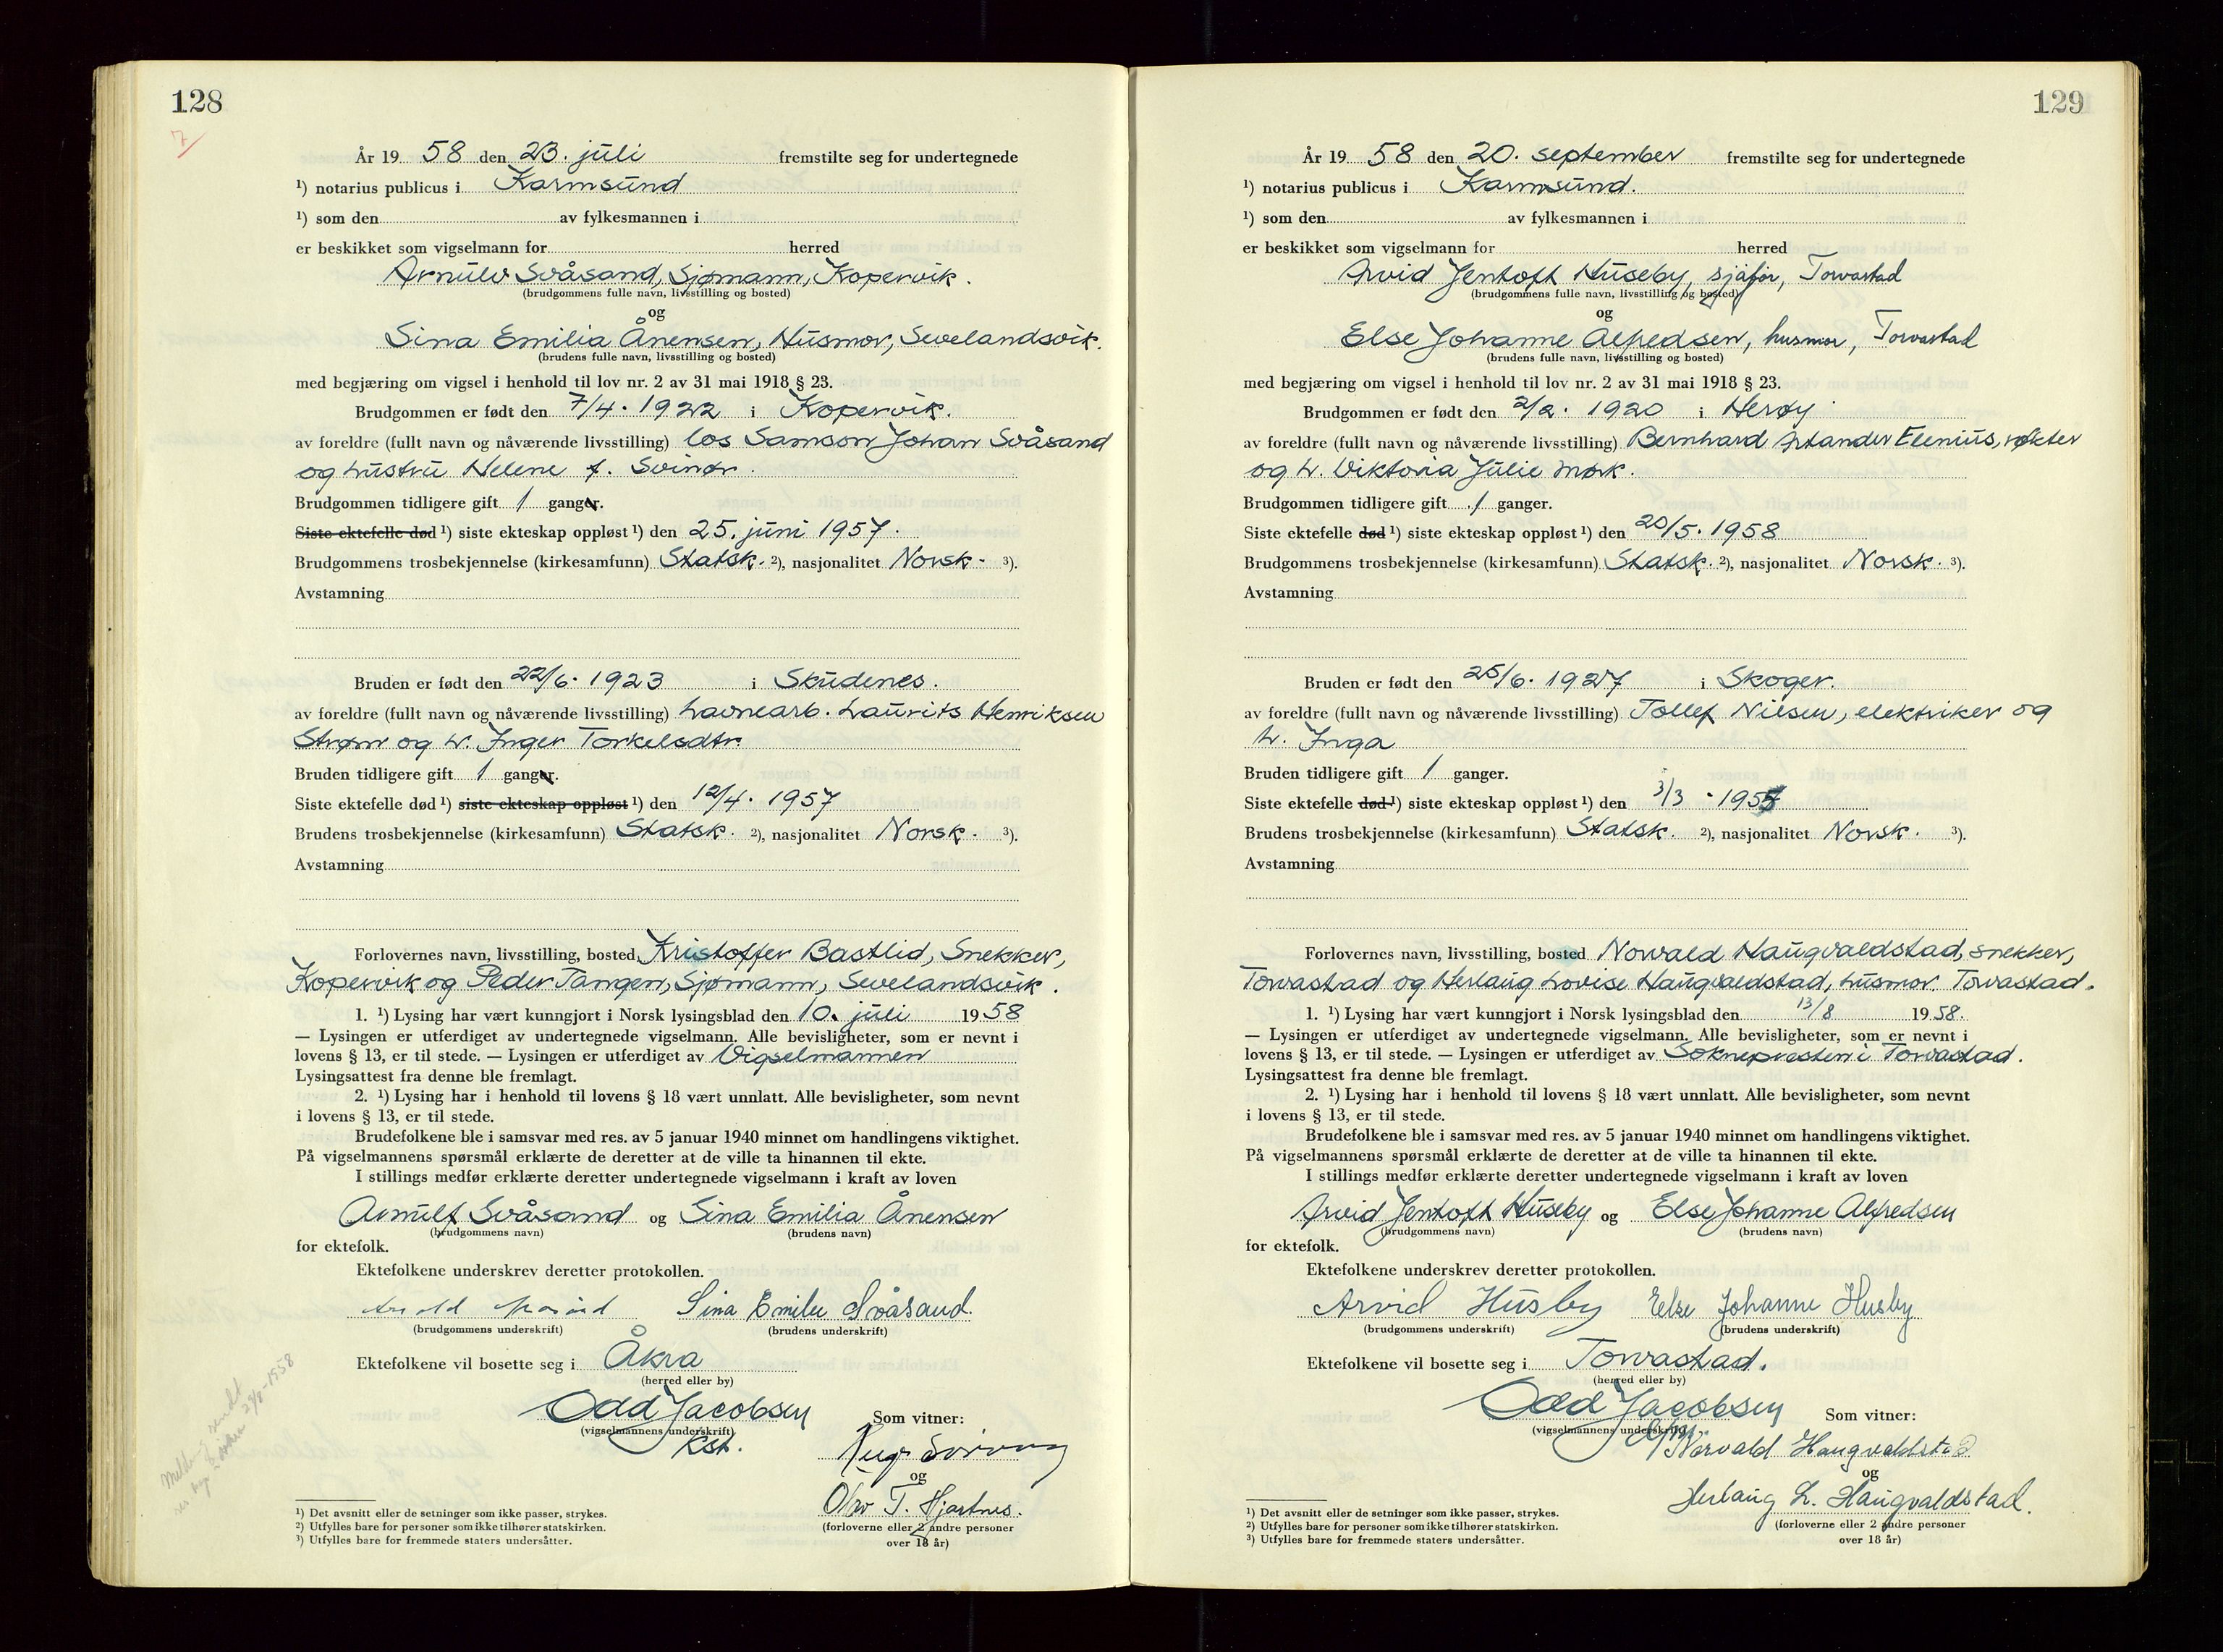 128
7
År 19 58 den 23. juli fremstilte seg for undertegnede
¹) notarius publicus i Karmsund
¹) som den av fylkesmannen i
er beskikket som vigselmann for herred
Arnulv Svåsand, Sjømann, Kopervik.
(brudgommens fulle navn, livsstilling og bosted)
og
Sina Emilia Ånensen, Husmor, Sevelandsvik.
(brudens fulle navn, livsstilling og bosted)
med begjæring om vigsel i henhold til lov nr. 2 av 31 mai 1918 § 23.
Brudgommen er født den 7/4. 1922 i Kopervik.
av foreldre (fullt navn og nåværende livsstilling) los Samson Johan Svåsand
og hustru Helene f. Svinør.
Brudgommen tidligere gift 1 ganger.
Siste ektefelle død ¹) siste ekteskap oppløst ¹) den 25. juni 1957.
Brudgommens trosbekjennelse (kirkesamfunn) Statsk. ²), nasjonalitet Norsk- ³).
Avstamning
Bruden er født den 22/6. 1923 i Skudenes.
av foreldre (fullt navn og nåværende livsstilling) havnearb. Laurits Henriksen
Strøm og h. Inger Torkelsdtr.
Bruden tidligere gift 1 ganger.
Siste ektefelle død ¹) siste ekteskap oppløst ¹) den 12/4. 1957
Brudens trosbekjennelse (kirkesamfunn) Statsk. ²), nasjonalitet Norsk. ³).
Avstamning
Forlovernes navn, livsstilling, bosted Kristoffer Bastlid, Snekker,
Kopervik og Peder Tangen, Sjømann, Sevelandsvik.
1. ¹) Lysing har vært kunngjort i Norsk lysingsblad den 10. juli 1958
— Lysingen er utferdiget av undertegnede vigselmann. Alle bevisligheter, som er nevnt i
lovens § 13, er til stede. — Lysingen er utferdiget av Vigselmannen
Lysingsattest fra denne ble fremlagt.
2. ¹) Lysing har i henhold til lovens § 18 vært unnlatt. Alle bevisligheter, som nevnt
i lovens § 13, er til stede.
Brudefolkene ble i samsvar med res. av 5 januar 1940 minnet om handlingens viktighet.
På vigselmannens spørsmål erklærte de deretter at de ville ta hinannen til ekte.
I stillings medfør erklærte deretter undertegnede vigselmann i kraft av loven
Arnulf Svåsand og Sina Emilia Ånensen
(brudgommens navn) (brudens navn)
for ektefolk.
Ektefolkene underskrev deretter protokollen.
Sina Emilie Svåsand.
(brudgommens underskrift) (brudens underskrift)
Ektefolkene vil bosette seg i Åkra
(herred eller by)
Odd Jacobsen Som vitner:
(vigselmannens underskrift)
Kst.
og
Olav T. Hjartnes.
(forloverne eller 2 andre personer
over 18 år)
¹) Det avsnitt eller de setninger som ikke passer, strykes.
²) Utfylles bare for personer som ikke tilhører statskirken.
³) Utfylles bare for fremmede staters undersåtter.
129
År 19 58 den 20. september fremstilte seg for undertegnede
¹) notarius publicus i Karmsund.
¹) som den av fylkesmannen i
er beskikket som vigselmann for herred
Arvid Jentoft Huseby, sjåfør, Torvastad
(brudgommens fulle navn, livsstilling og bosted)
og
Else Johanne Alfredsen, husmor, Torvastad
(brudens fulle navn, livsstilling og bosted)
med begjæring om vigsel i henhold til lov nr. 2 av 31 mai 1918 § 23.
Brudgommen er født den 2/2. 1920 i Herøy
av foreldre (fullt navn og nåværende livsstilling) Bernhard Artander Elenius, røkter
og h. Viktoria Julie Mørk.
Brudgommen tidligere gift 1 ganger.
Siste ektefelle død ¹) siste ekteskap oppløst ¹) den 20/5. 1958
Brudgommens trosbekjennelse (kirkesamfunn) Statsk. ²), nasjonalitet Norsk. ³).
Avstamning
Bruden er født den 25/6. 1927 i Skoger.
av foreldre (fullt navn og nåværende livsstilling) Tollef Nilsen, elektriker og
h. Inga
Bruden tidligere gift 1 ganger.
Siste ektefelle død ¹) siste ekteskap oppløst ¹) den 3/3
Brudens trosbekjennelse (kirkesamfunn) Statsk. ²), nasjonalitet Norsk. ³).
Avstamning
Forlovernes navn, livsstilling, bosted Norvald Haugvaldstad, snekker,
Torvastad og Herlaug Lovise Haugvaldstad, husmor. Torvastad.
1. ¹) Lysing har vært kunngjort i Norsk lysingsblad den 13/8 1958.
— Lysingen er utferdiget av undertegnede vigselmann. Alle bevisligheter, som er nevnt i
lovens § 13, er til stede. — Lysingen er utferdiget av Soknepresten i Torvastad.
Lysingsattest fra denne ble fremlagt.
2. ¹) Lysing har i henhold til lovens § 18 vært unnlatt. Alle bevisligheter, som nevnt
i lovens § 13, er til stede.
Brudefolkene ble i samsvar med res. av 5 januar 1940 minnet om handlingens viktighet.
På vigselmannens spørsmål erklærte de deretter at de ville ta hinannen til ekte.
I stillings medfør erklærte deretter undertegnede vigselmann i kraft av loven
Arvid Jentoft Huseby og Else Johanne Alfredsen
(brudgommens navn) (brudens navn)
for ektefolk.
Ektefolkene underskrev deretter protokollen.
Arvid Husby Else Johanne Husby
(brudgommens underskrift) (brudens underskrift)
Ektefolkene vil bosette seg i Torvastad.
(herred eller by)
Odd Jacobsen Som vitner:
(vigselmannens underskrift)
Norvald Haugvaldstad
og
Herlaug L. Haugvaldstad.
(forloverne eller 2 andre personer
over 18 år)
¹) Det avsnitt eller de setninger som ikke passer, strykes.
²) Utfylles bare for personer som ikke tilhører statskirken.
³) Utfylles bare for fremmede staters undersåtter.